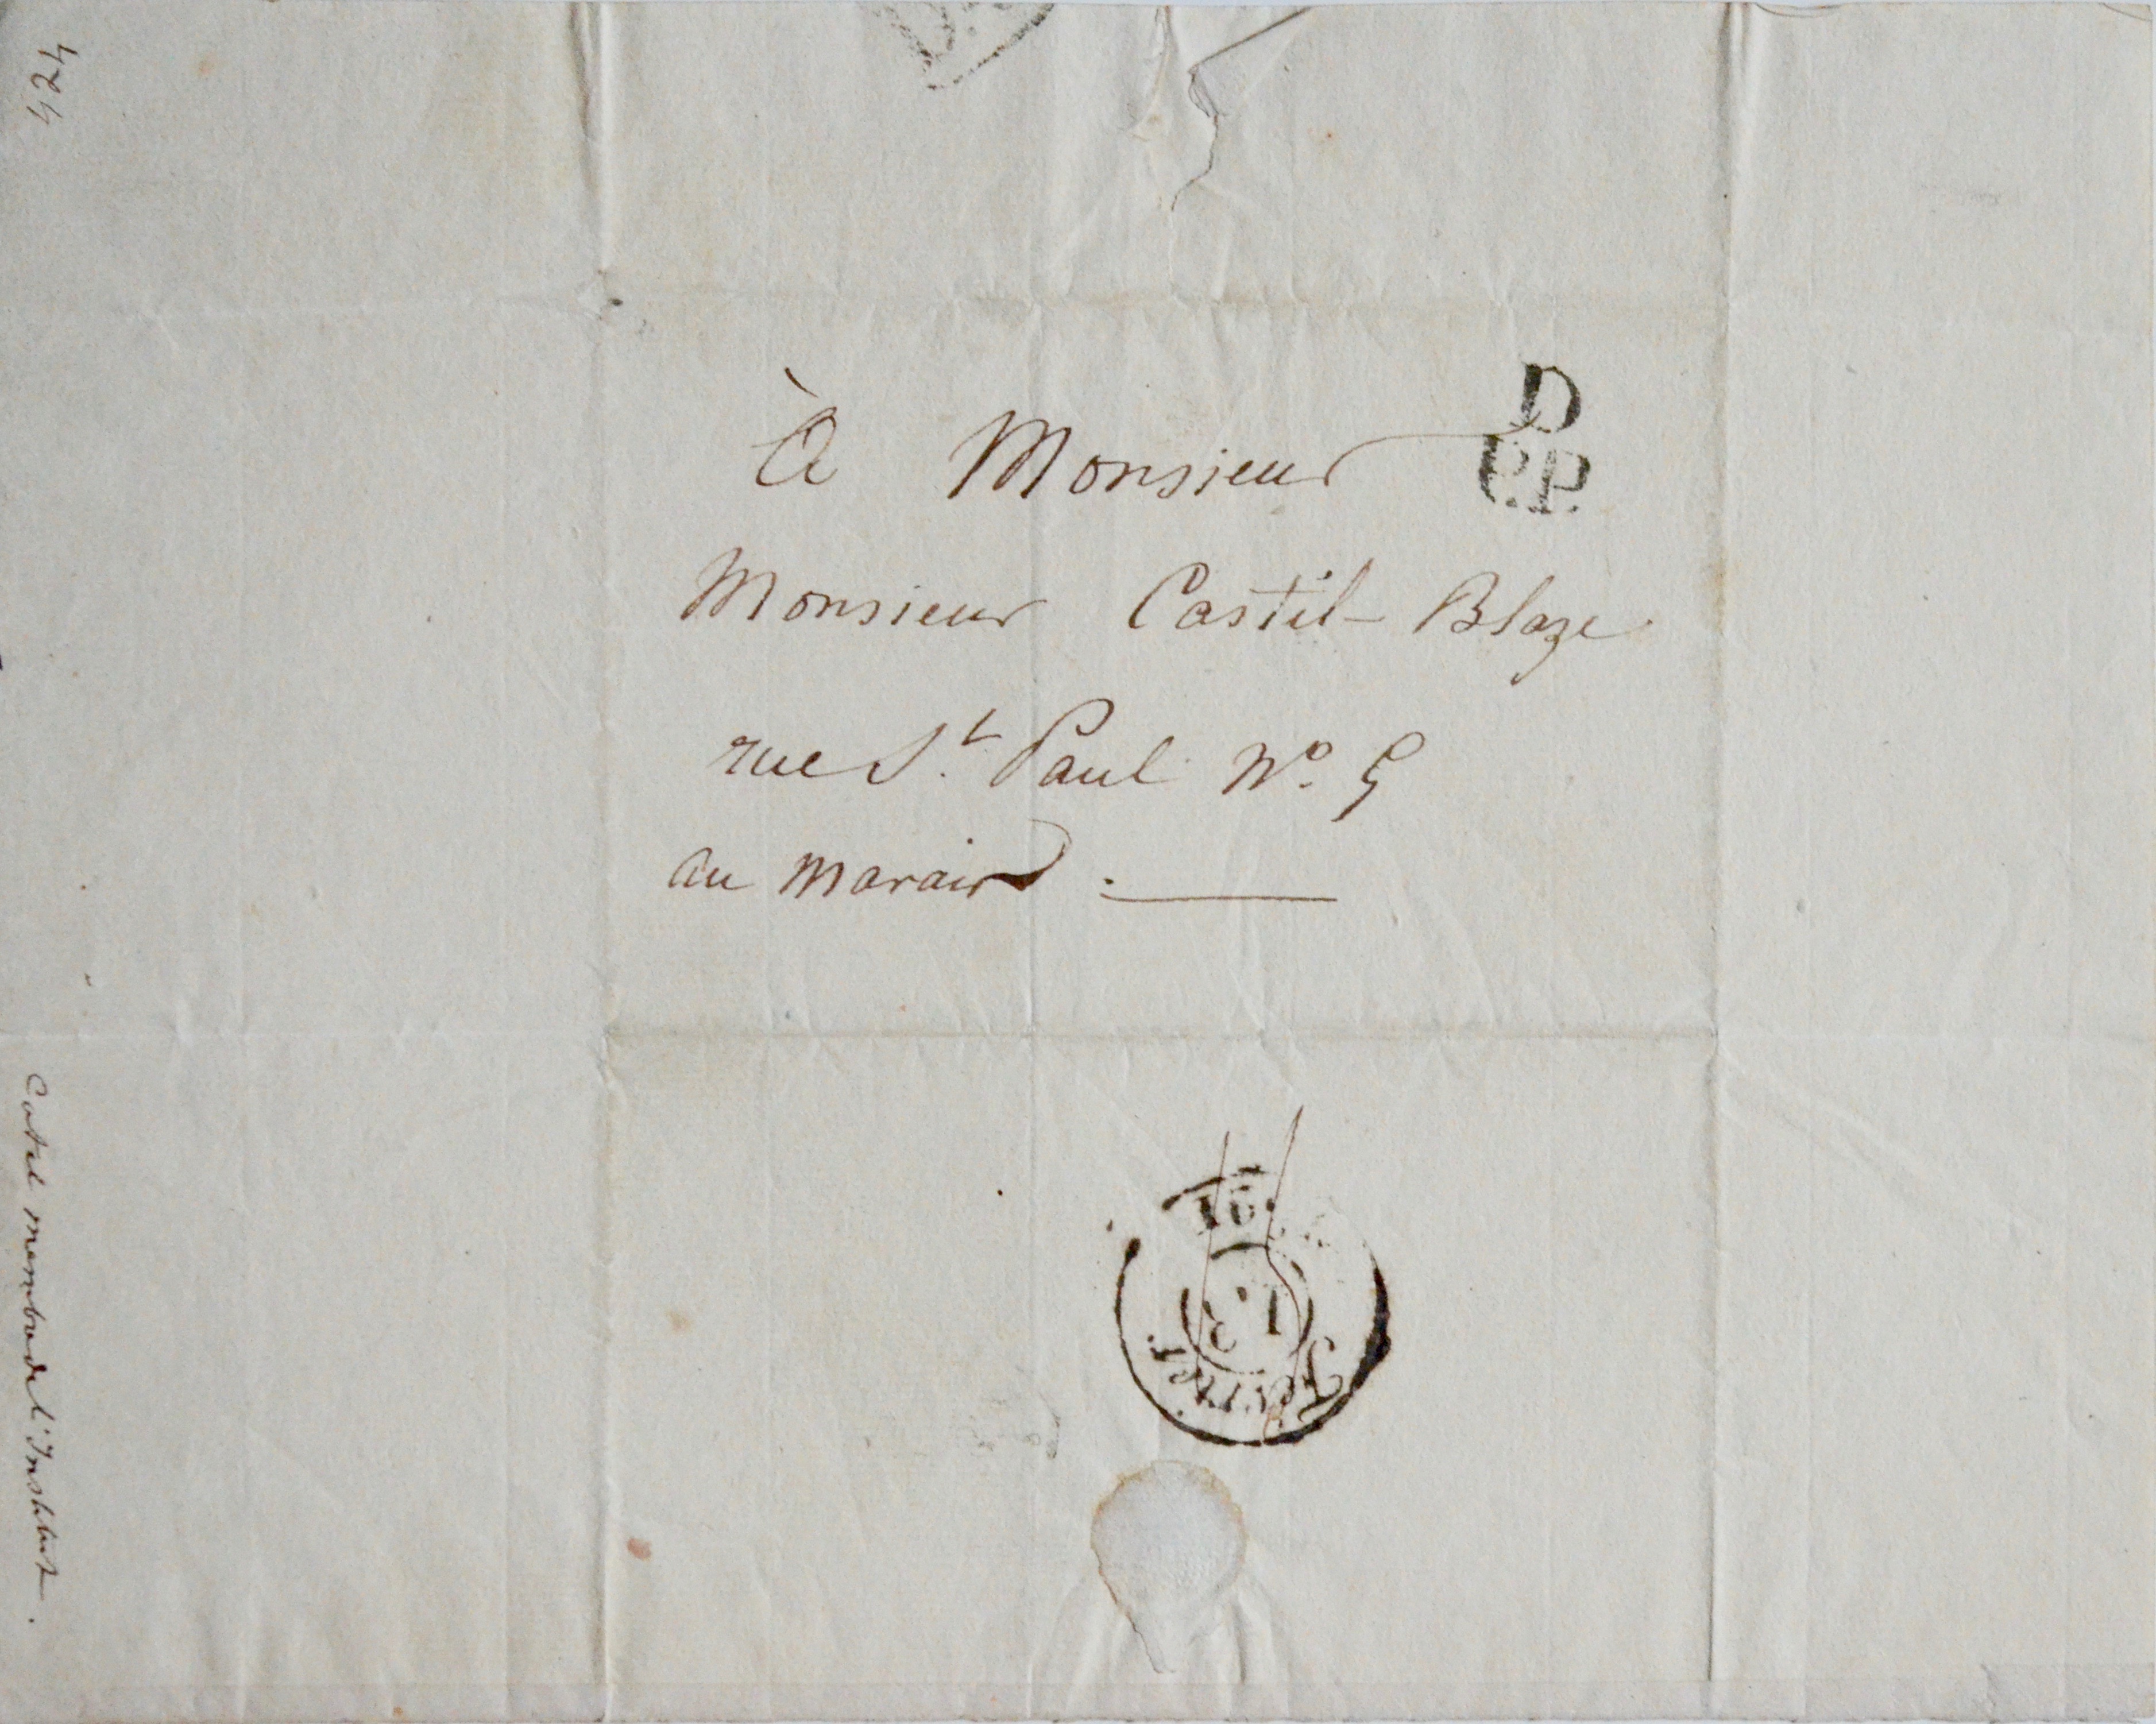 424
À Monsieur
D
P.P.
Monsieur Castil-Blaze
rue S.t Paul N.o 5
au Marais.
Février
Catel membre de l'Institut.